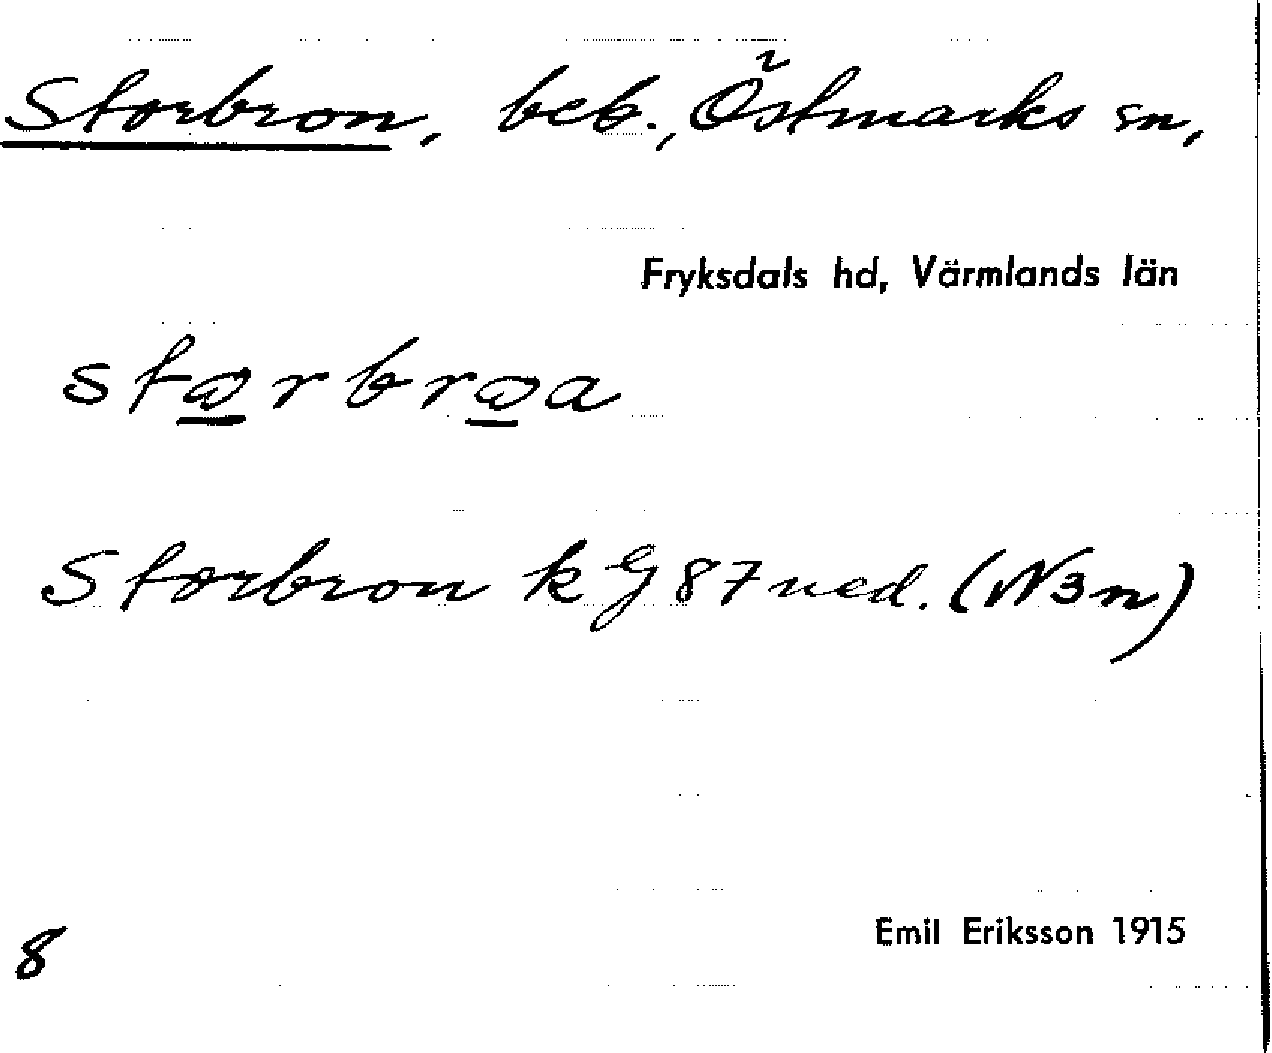 Storbron, beb., Östmarks sn,
Fryksdals hd, Värmlands län
storbroa
Storbron k G 87 ned. (N3n)
Emil Eriksson 1915
8